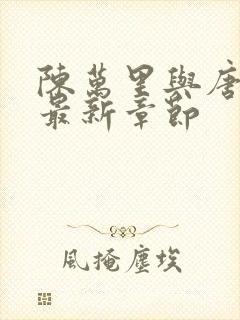 陳萬里與唐
最新章節
風掩塵埃